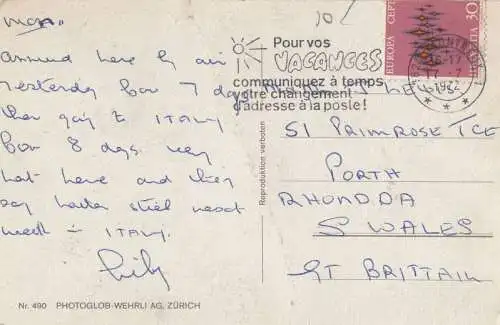 mon.
Arrived here by air
yesterday for 7 days
then going to ITALY
for 8 days. very
hot here and they
say hotter still next
week - ITALY.
10/
Pour vos
VACANCES
communiquez à temps
votre changement
d'adresse à la poste!
EUROPA CEPT
HELVETIA 30
16-17
1972
51 PRIMROSE TCE
PORTH
RHONDDA
S WALES
GT BRITTAIN
Reproduktion verboten
Nr. 490 PHOTOGLOB-WEHRLI AG, ZÜRICH